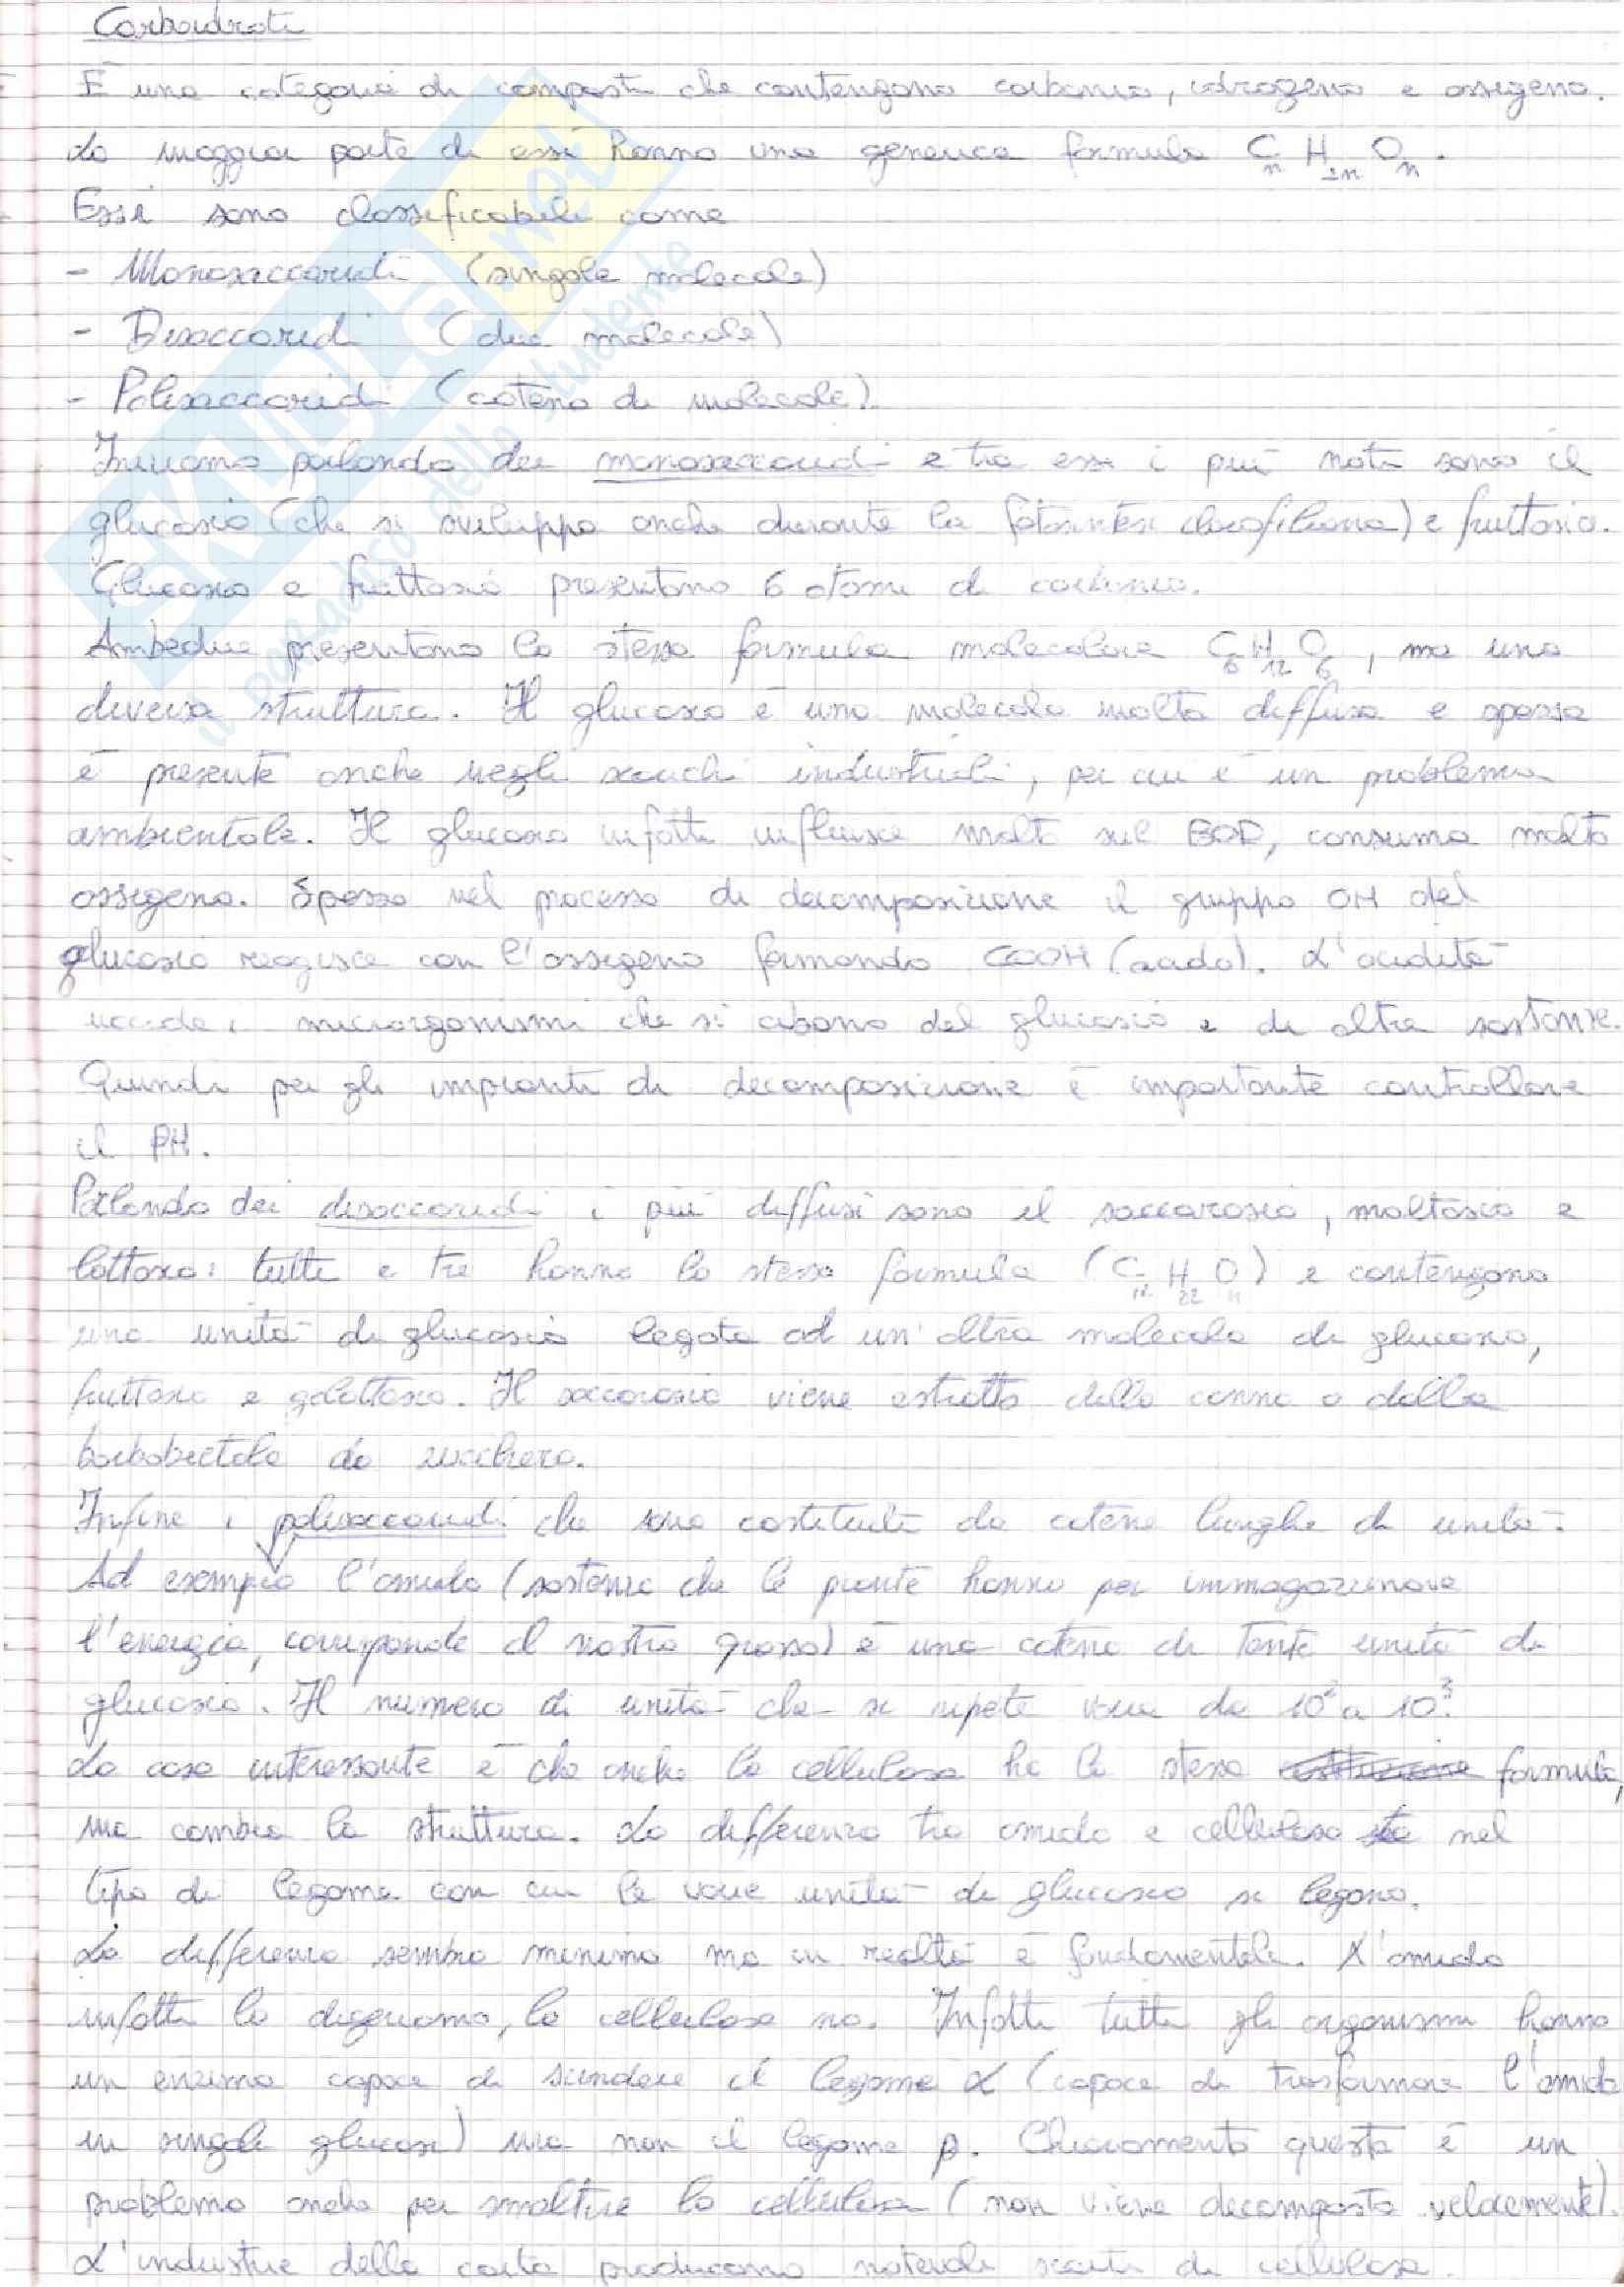 Carboidrati
È una categoria di composti che contengono carbonio, idrogeno e ossigeno.
La maggior parte di essi hanno una generica formula CnH2nOn.
Essi sono classificabili come
- Monosaccaridi (singole molecole)
- Disaccaridi (due molecole)
- Polisaccaridi (catena di molecole).
Iniziamo parlando dei monosaccaridi e tra essi i più noti sono il
glucosio (che si sviluppa anche durante la fotosintesi clorofiliana) e fruttosio.
Glucosio e fruttosio presentano 6 atomi di carbonio.
Ambedue presentano la stessa formula molecolare C6H12O6, ma una
diversa struttura. Il glucosio è una molecola molto diffusa e spesso
è presente anche negli scarichi industriali, per cui è un problema
ambientale. Il glucosio infatti influisce molto sul BOD, consuma molto
ossigeno. Spesso nel processo di decomposizione il gruppo OH del
glucosio reagisce con l'ossigeno formando COOH (acido). L'acidità
uccide i microrganismi che si cibano del glucosio e di altre sostanze.
Quindi per gli impianti di decomposizione è importante controllare
il PH.
Parlando dei disaccaridi i più diffusi sono il saccarosio, maltosio e
lattosio: tutti e tre hanno la stessa formula (C12H22O11) e contengono
una unità di glucosio legata ad un'altra molecola di glucosio,
fruttosio e galattosio. Il saccarosio viene estratto dalla canna o dalla
barbabietola da zucchero.
Infine i polisaccaridi che sono costituiti da catene lunghe di unità.
Ad esempio l'amido (sostanza che le piante hanno per immagazzinare
l'energia, corrisponde al nostro grasso) è una catena di tante unità di
glucosio. Il numero di unità che si ripete varia da 10² a 10³.
La cosa interessante è che anche la cellulosa ha la stessa formula,
ma cambia la struttura. La differenza tra amido e cellulosa sta nel
tipo di legame con cui le varie unità di glucosio si legano.
La differenza sembra minima ma in realtà è fondamentale. L'amido
infatti lo digeriamo, la cellulosa no. Infatti tutti gli organismi hanno
un enzima capace di scindere il legame α (capace di trasformare l'amido
in singoli glucosi) ma non il legame β. Chiaramente questo è un
problema anche per smaltire la cellulosa (non viene decomposta velocemente).
L'industrie della carta producono materiali scarti di cellulosa.
SKUOLA.net
il paradiso dello studente